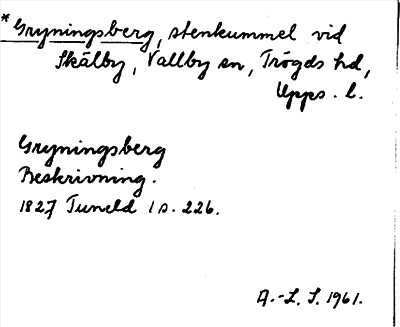 *Gryningsberg, stenkummel vid
Skälby, Vallby sn, Trögds hd,
Upps. l.
Gryningsberg
Beskrivning.
1827 Tuneld 1 s. 226.
A.-L. S. 1961.